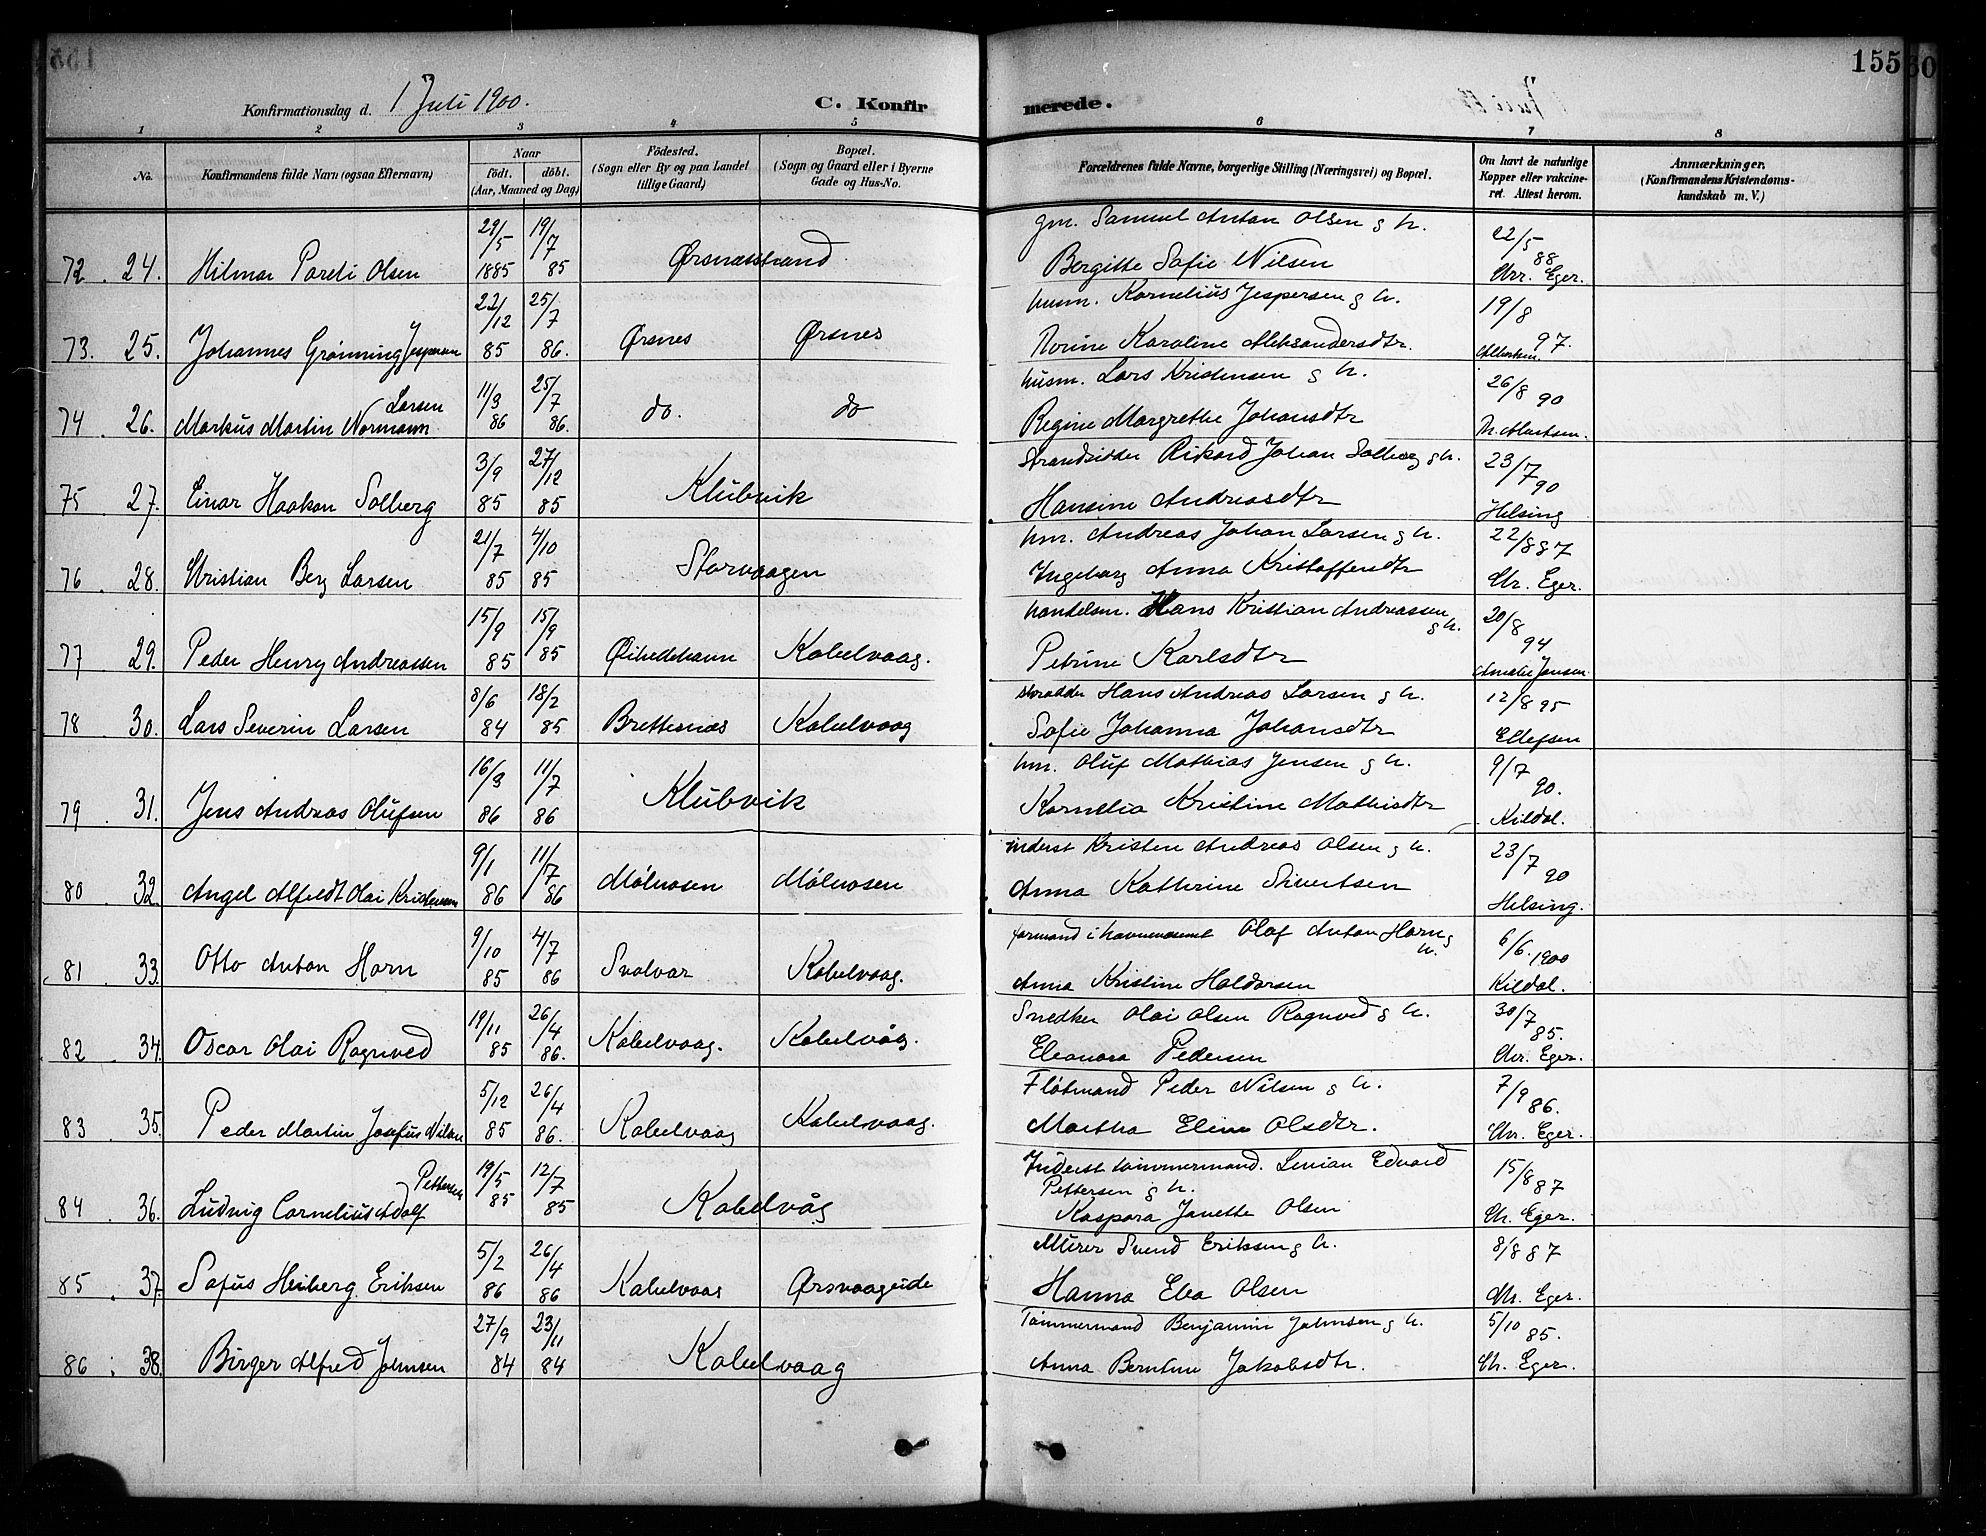 155
Konfirmationsdag d. 1 Juli 1900.
C. Konfirmerede.
1 2 3 4 5 6 7 8
No.
Konfirmandens fulde Navn (ogsaa Efternavn)
Naar
födt. döbt.
(Aar, Maaned og Dag)
Födested.
(Sogn eller By og paa Landet
tillige Gaard)
Bopæl.
(Sogn og Gaard eller i Byerne
Gade og Hus-No.
Forældrenes fulde Navne, borgerlige Stilling (Næringsvei) og Bopæl.
Om havt de naturlige
Kopper eller vakcine-
ret. Attest herom.
Anmærkninger.
(Konfirmandens Kristendoms-
kundskab m. V.)
72. 24. Hilmar Pareli Olsen 29/5 1885 19/7 85 Ørsnæsstrand gm. Samuel Anton Olsen g h. Bergitte Sofie Nilsen 22/5 88 Chr. Eger.
73. 25. Johannes Grönning Jespersen 22/12 85 25/7 86. Ørsnes Ørsnes husm. Kornelius Jespersen g h. Norine Karoline Aleksandersdtr. 19/8 97.
74. 26. Markus Martin Normann Larsen 11/3 86 25/7 86. do. do husm. Lars Kristensen g h. Regine Margrethe Johansdtr 26/8 90
75. 27. Einar Haakon Solberg 3/9 85 27/12 85 Klubvik Strandsidder Rikard Johan Solberg g h. Hansine Andreasdtr 23/7 90 Helsing
76. 28. Christian Berg Larsen 21/7 85 4/10 85 Storvaagen hm. Andreas Johan Larsen g h. Ingeborg Anna Kristoffersdtr 22/8 87 Chr. Eger.
77 29. Peder Henry Andreassen 15/9 85 15/9 85 Kabelvaag. handelsm. Hans Kristian Andreassen g h. Petrine Karlsdtr 20/8 94 Amalie Jensen
78 30. Lars Severin Larsen 8/6 84 18/2 85 Brettesnæs Kabelvaag skrædder Hans Andreas Larsen g h. Sofie Johanna Johansdtr 12/8 95 Ellefsen
79. 31. Jens Andreas Olufsen 16/3 86 11/7 86 Klubvik hm. Oluf Mathias Jensen g h. Kornelia Kristine Mathisdtr 9/7 90. Kildal.
80. 32. Angel Alfeldt Olai Kristensen 9/1 86 11/7 86 Mölnosen Mölnosen inderst Kristen Andreas Olsen g h. Anna Kathrine Sivertsen 23/7 90 Helsing.
81. 33. Otto Anton Horn 9/10 85 4/7 86 Svolvær Kabelvaag. formand i havnevæsenet Olaf Anton Horn g h. Anna Kristine Haldorsen 6/6. 1900 Kildal.
82. 34. Oscar Olai Ragnved 19/11 85 26/4 86. Kabelvaag. Kabelvåg. Snedker Olai Olsen Ragnved g h. Eleonora Pedersen 30/7 85. Chr. Eger.
83. 35. Peder Martin Josefus Nilsen 5/12 85 26/4 86. Kabelvaag Kabelvaag. Flötmand Peder Nilsen g h. Martha Eline Olsdtr. 7/9 86. Chr. Eger.
84. 36. Ludvig Cornelius Adolf Pettersen 19/5 85 12/7 85 Kabelvåg Inderst tömmermand. Edvard Pettersen g h. Kaspara Janette Olsen 15/8 87 Ch. Eger.
85. 37. Sofus Heiberg Eriksen 5/2 86 26/4 86 Kabelvaag Ørsvaageide Murer Svend Eriksen g h. Hanna Elea Olsen 8/8 87 Chr. Eger.
86. 38. Birger Alfred Johnsen 27/9 84 23/11 84 Kabelvaag Tömmermand Benjamin Johnsen g h. Anna Berntine Jakobsdtr. 5/10 85. Ch. Eger.